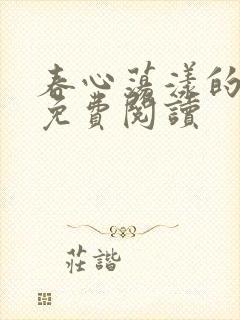 春心蕩漾的
免費閱讀
莊諧